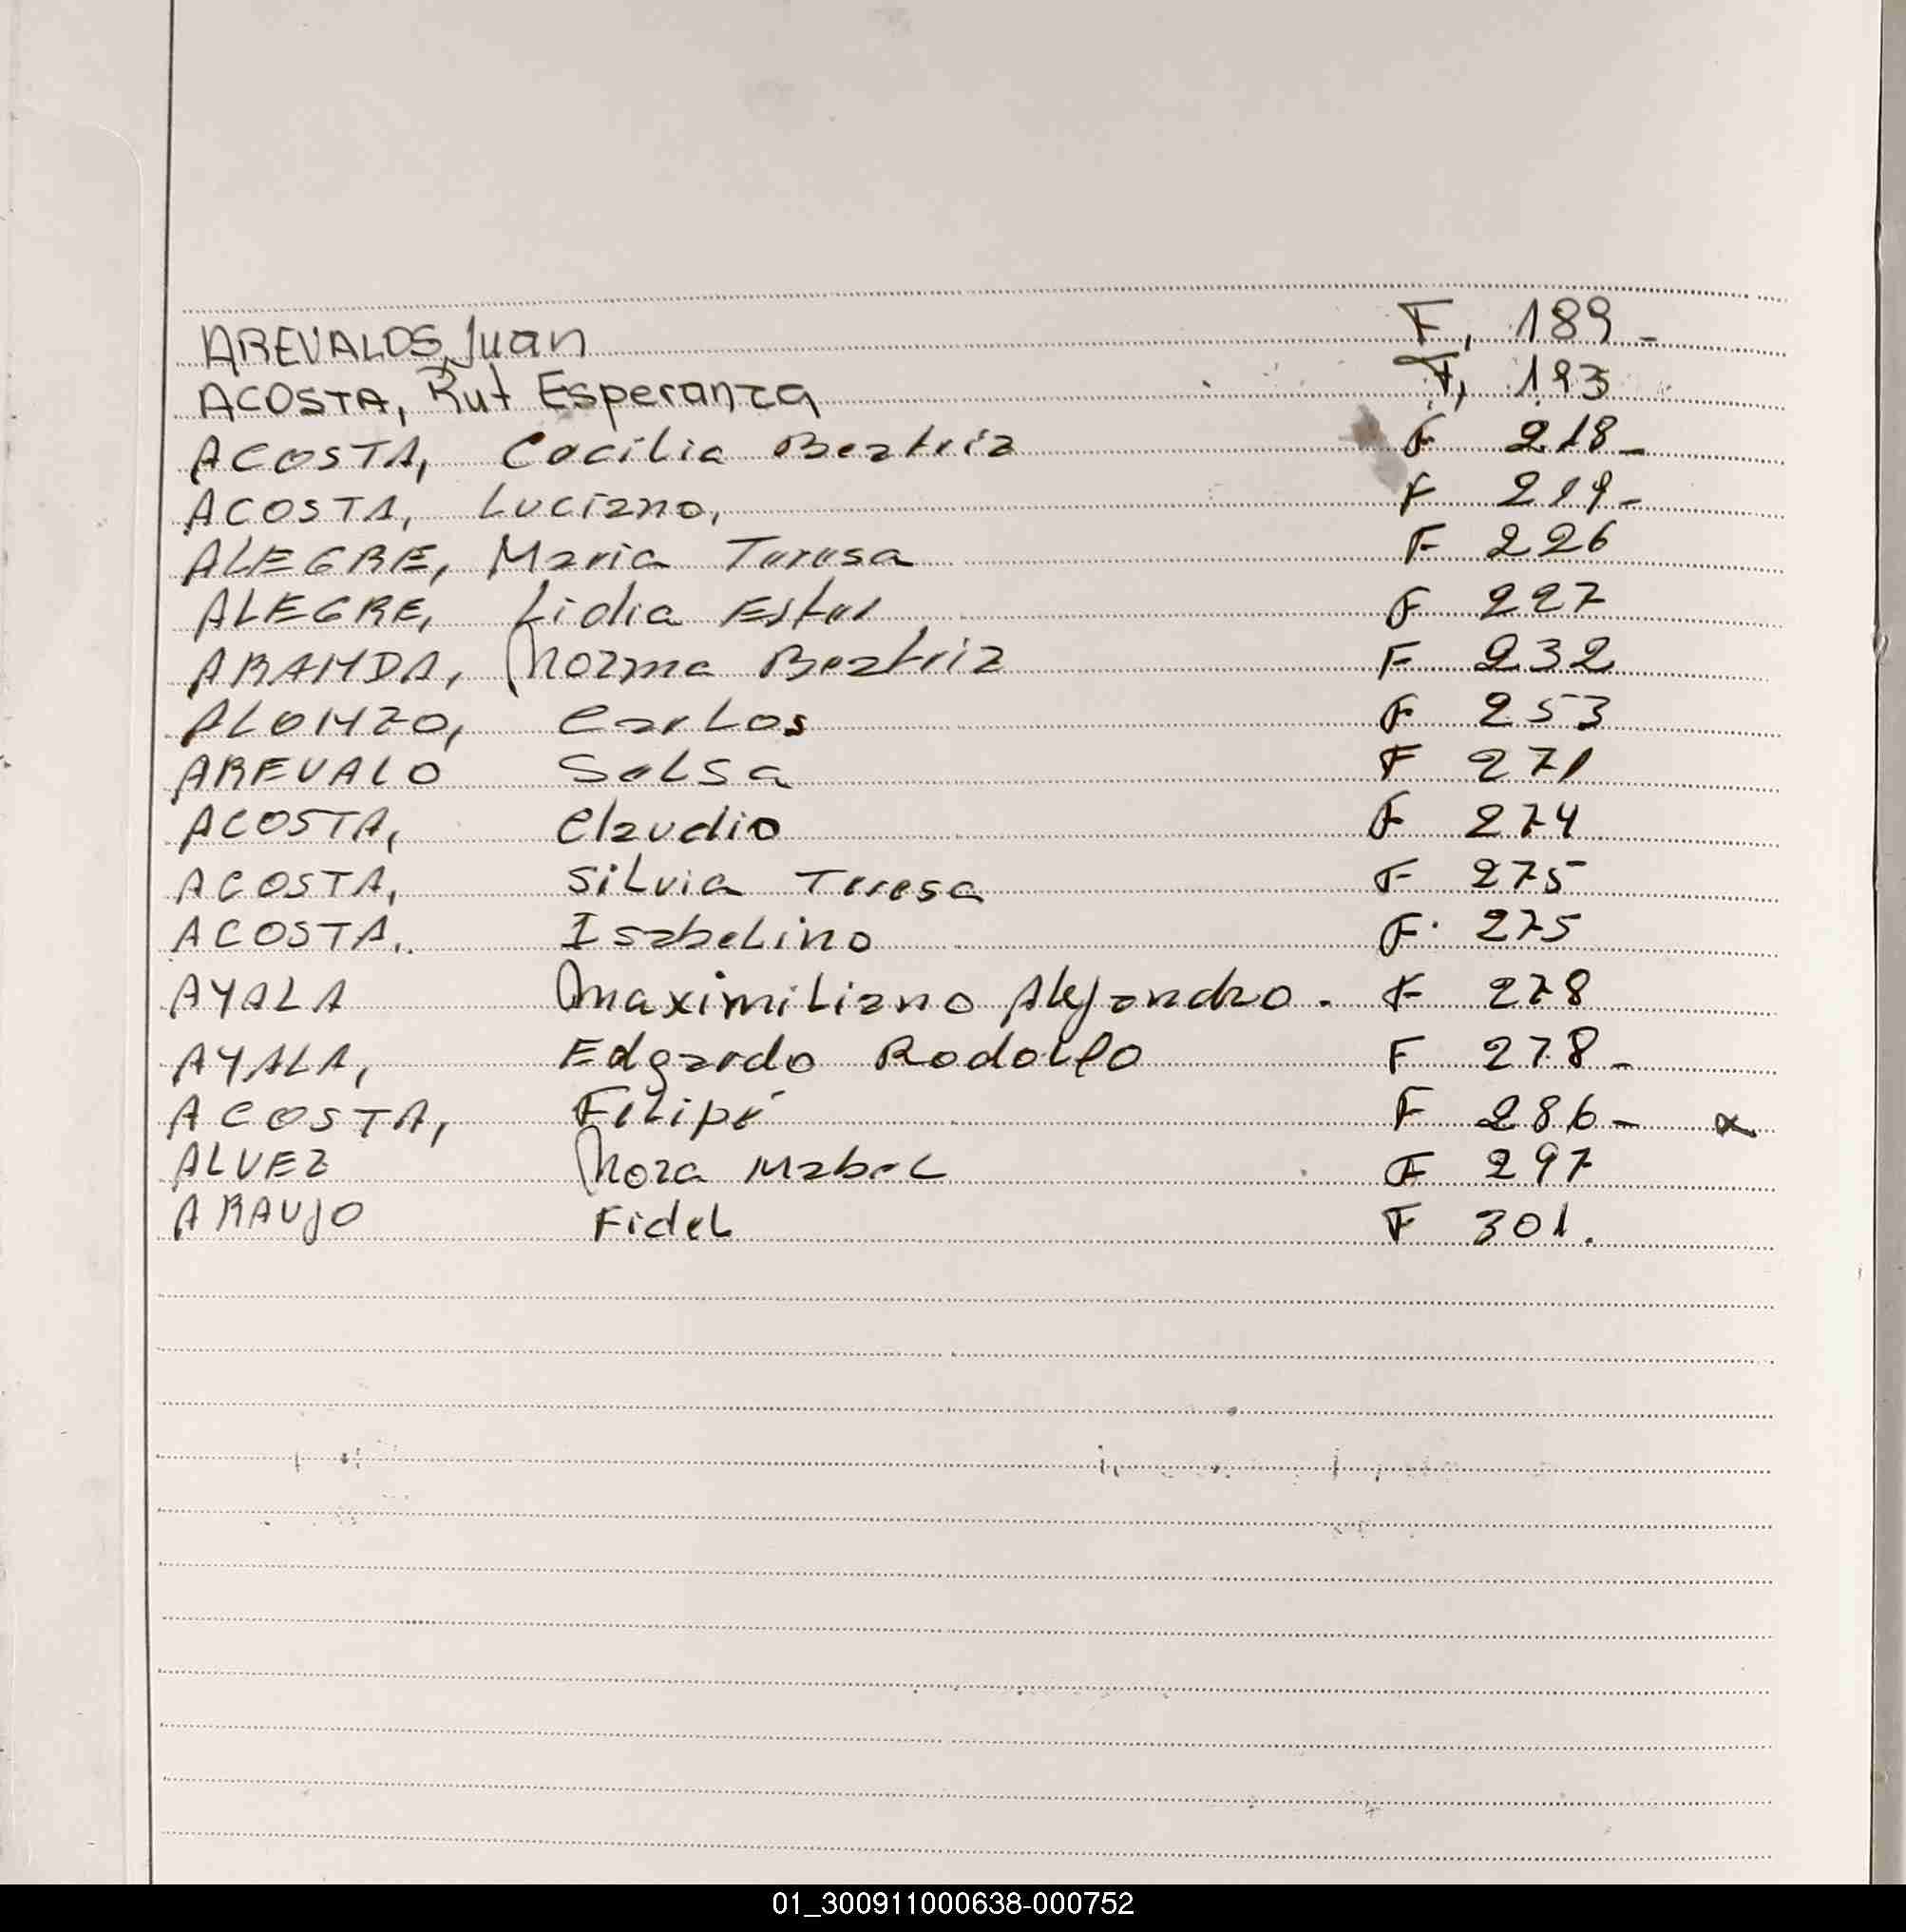 AREVALOS, Juan F, 189-
ACOSTA, Rut Esperanza F, 193
ACOSTA, Cecilia Beatriz F 218-
ACOSTA, Luciano, F 219-
ALEGRE, Maria Teresa F 226
ALEGRE, Lidia Ester F 227
ARANDA, Norma Beatriz F 232
ALONZO, Carlos F 253
AREVALO F 271
ACOSTA, Claudio F 274
ACOSTA, Silvia Teresa F 275
ACOSTA, Isabelino F. 275
AYALA Maximiliano Alejandro. F 278
AYALA, Edgardo Rodolfo F 278-
ACOSTA, Felipe F 286-
ALVEZ Nora Mabel F 297
ARAUJO Fidel F 301.
01_300911000638-000752